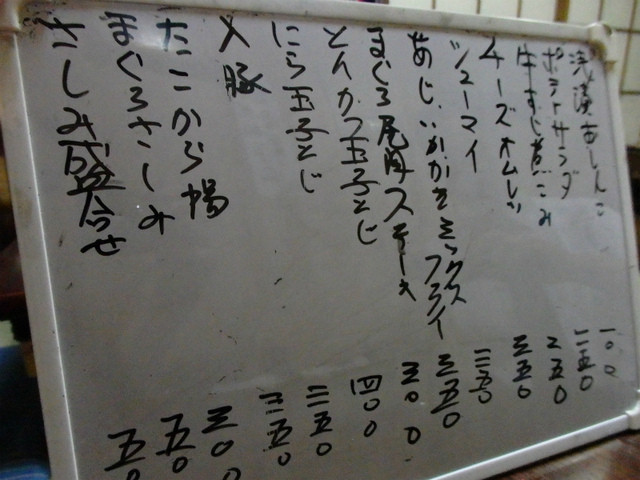 浅漬おしんこ 一〇〇
ポテトサラダ 二五〇
牛すじ煮こみ 二五〇
チーズオムレツ 三五〇
シューマイ 二五〇
あじ、いかかきミックスフライ 三五〇
まぐろ尾肉ステーキ 三〇〇
とんかつ玉子とじ 四〇〇
にら玉子とじ 三五〇
豚 三五〇
たこから揚 三〇〇
まぐろさしみ 五〇
さしみ盛合せ 五〇